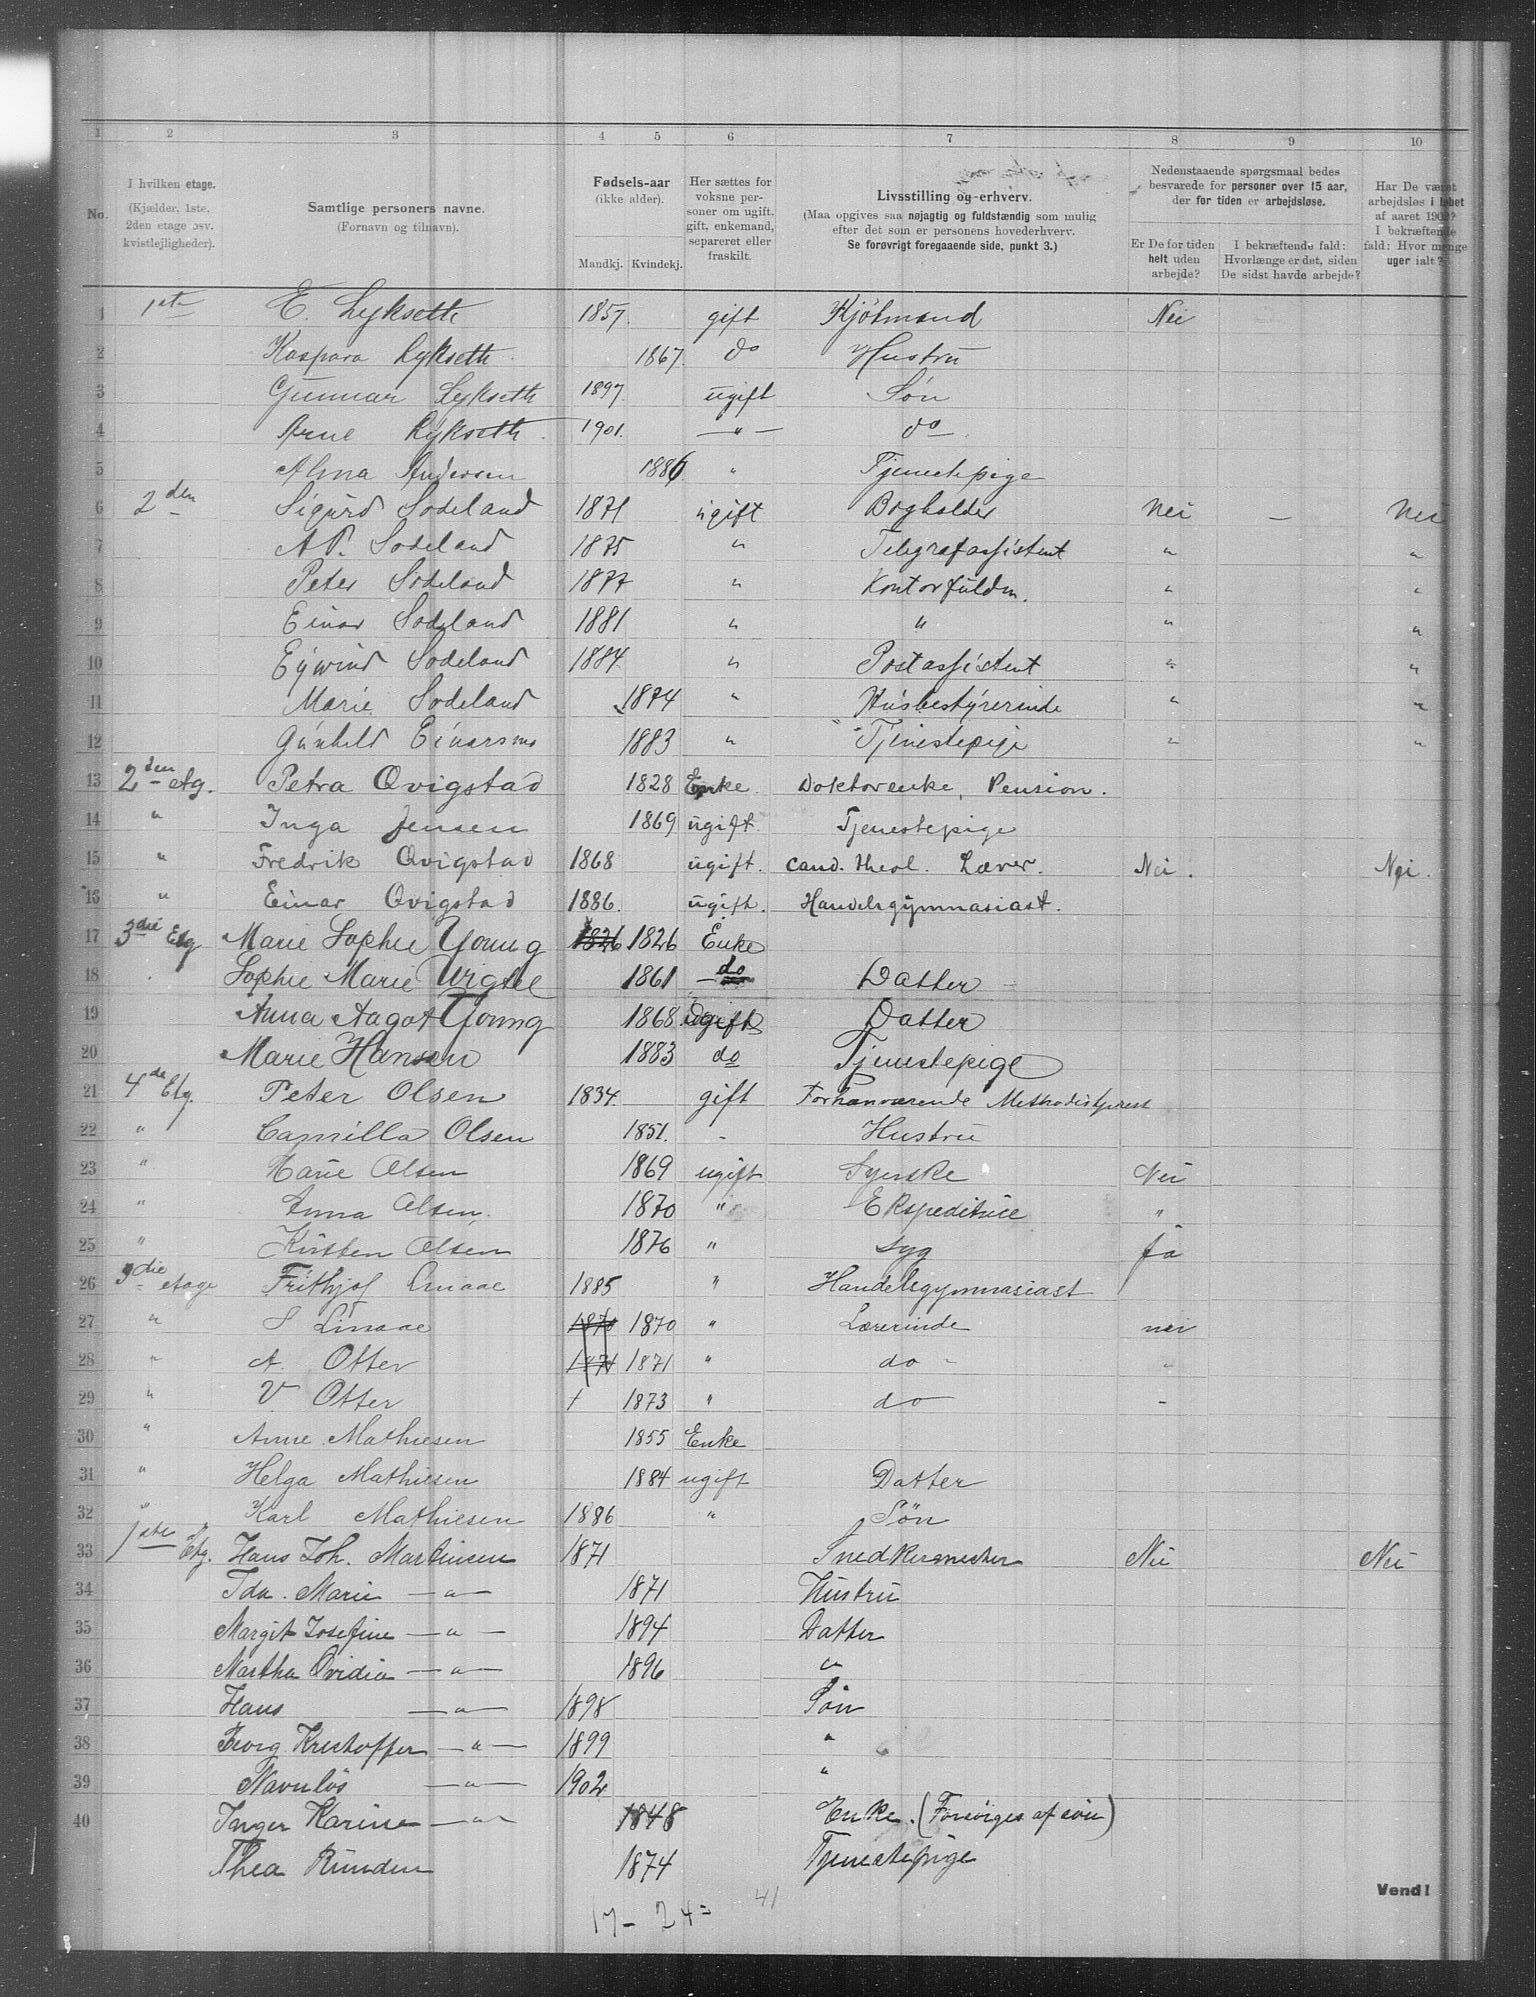 1 2 3 4 5 6 7 8 9 10
No. I hvilken etage. (Kjælder, 1ste, 2den etage osv. kvistlejligheder). Samtlige personers navne. (Fornavn og tilnavn). Fødsels-aar (ikke alder). Mandkj. Kvindekj. Her sættes for voksne personer om ugift, gift, enkemand, separeret eller fraskilt. Livsstilling og erhverv. (Maa opgives saa nøjagtig og fuldstændig som mulig efter det som er personens hovederhverv. Se forøvrigt foregaaende side, punkt 3.) Nedenstaaende spørgsmaal bedes besvarede for personer over 15 aar, der for tiden er arbejdsløse. Er De for tiden helt uden arbejde? I bekræftende fald: Hvorlænge er det, siden De sidst havde arbejde? Har De været arbejdsløs i løbet af aaret 1902? I bekræftende fald: Hvor mange uger ialt?
1 1ste E. Lykseth 1857. gift Kjøtmand Nei
2 Kaspara Lykseth 1867. do Hustru
3 Gunnar Lykseth 1897. ugift Søn
4 Arne Lykseth 1901. — " — do
5 Alma Andersen 1886 " Tjenestepige
6 2den Sigurd Sodeland 1871 ugift Bogholder Nei — Nei
7 A.P. Sodeland 1875 " Telegrafassistent " "
8 Peter Sodeland 1877 " Kontorfuldm. " "
9 Einar Sodeland 1881 " " " "
10 Eywind Sodeland 1884. " Postassistent " "
11 Marie Sodeland 1874 " Husbestyrerinde " "
12 Gunhild Einarsen 1883 " Tjenestepige " "
13 2den etg. Petra Qvigstad 1828 Enke. Doktorenke, Pension.
14 " Inga Jensen 1869 ugift. Tjenestepige
15 " Fredrik Qvigstad 1868 ugift. cand. theol. Lærer. Nei. Nei.
16 " Einar Qvigstad 1886. ugift. Handelsgymnasiast.
17 3die Etg Marie Sophie Young 1826 1826 Enke
18 Sophie Marie 1861 do Datter
19 Anna Aagot Young 1868 ugift Datter
20 Marie Hansen 1883 do Tjenestepige
21 4de Etg. Peter Olsen 1834. gift Forhenværende Methodistprest
22 " Camilla Olsen 1851. - Hustru
23 " Marie Olsen 1869 ugift Syerske Nei
24 " Anna Olsen. 1870 " Ekspeditrice "
25 " Kirsten Olsen 1876 " Syg ja
26 3die etage Frithjof Linaae 1885 " Handelsgymnasiast
27 " S Linaae 1870 1870 " Lærerinde nei
28 " A. Otter 1871 1871 " do - "
29 " V. Otter 1873 " do -
30 " Anne Mathiesen 1855 Enke
31 " Helga Mathiesen 1884 ugift Datter
32 " Karl Mathiesen 1886 " Søn
33 1ste Etg. Hans Joh. Martinsen 1871 Snedkermester Nei Nei
34 Ida Marie — " — 1871 Hustru
35 Margit Josefine — " — 1894 Datter
36 Martha Ovidia — " — 1896 "
37 Hans — " — 1898 Søn
38 Georg Kristoffer — " — 1899 "
39 Navnløs — " — 1902 "
40 Inger Karine — " — 1848 Enke. (Forsørges af søn)
Thea Runden 1874 Tjenestepige
Vend!
17 - 24 = 41